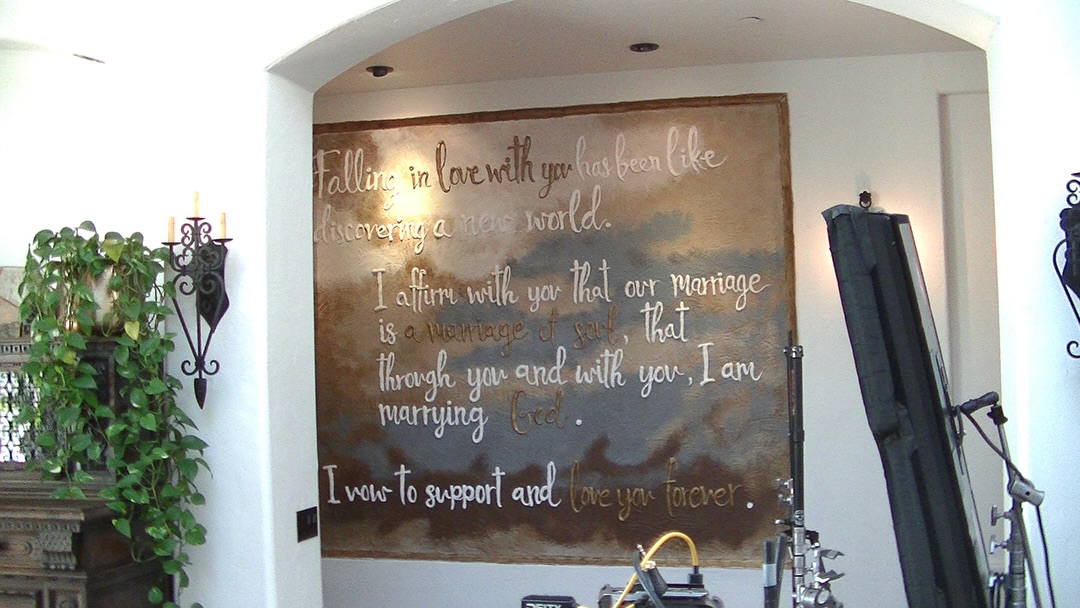 Falling in love with you has been like
discovering a new world.
I affirm with you that our marriage
is a marriage of soul, that
through you and with you, I am
marrying God.
I vow to support and love you forever.
DEITY